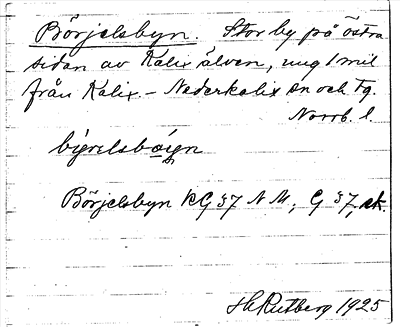 Börjelsbyn. Stor by på östra
sidan av Kalix älven, ung 1 mil
från Kalix. - Nederkalix sn och tg.
Norrb. l.
Börjelsbyn RG 37 NM; G 37, ek.
H Rutberg 1925